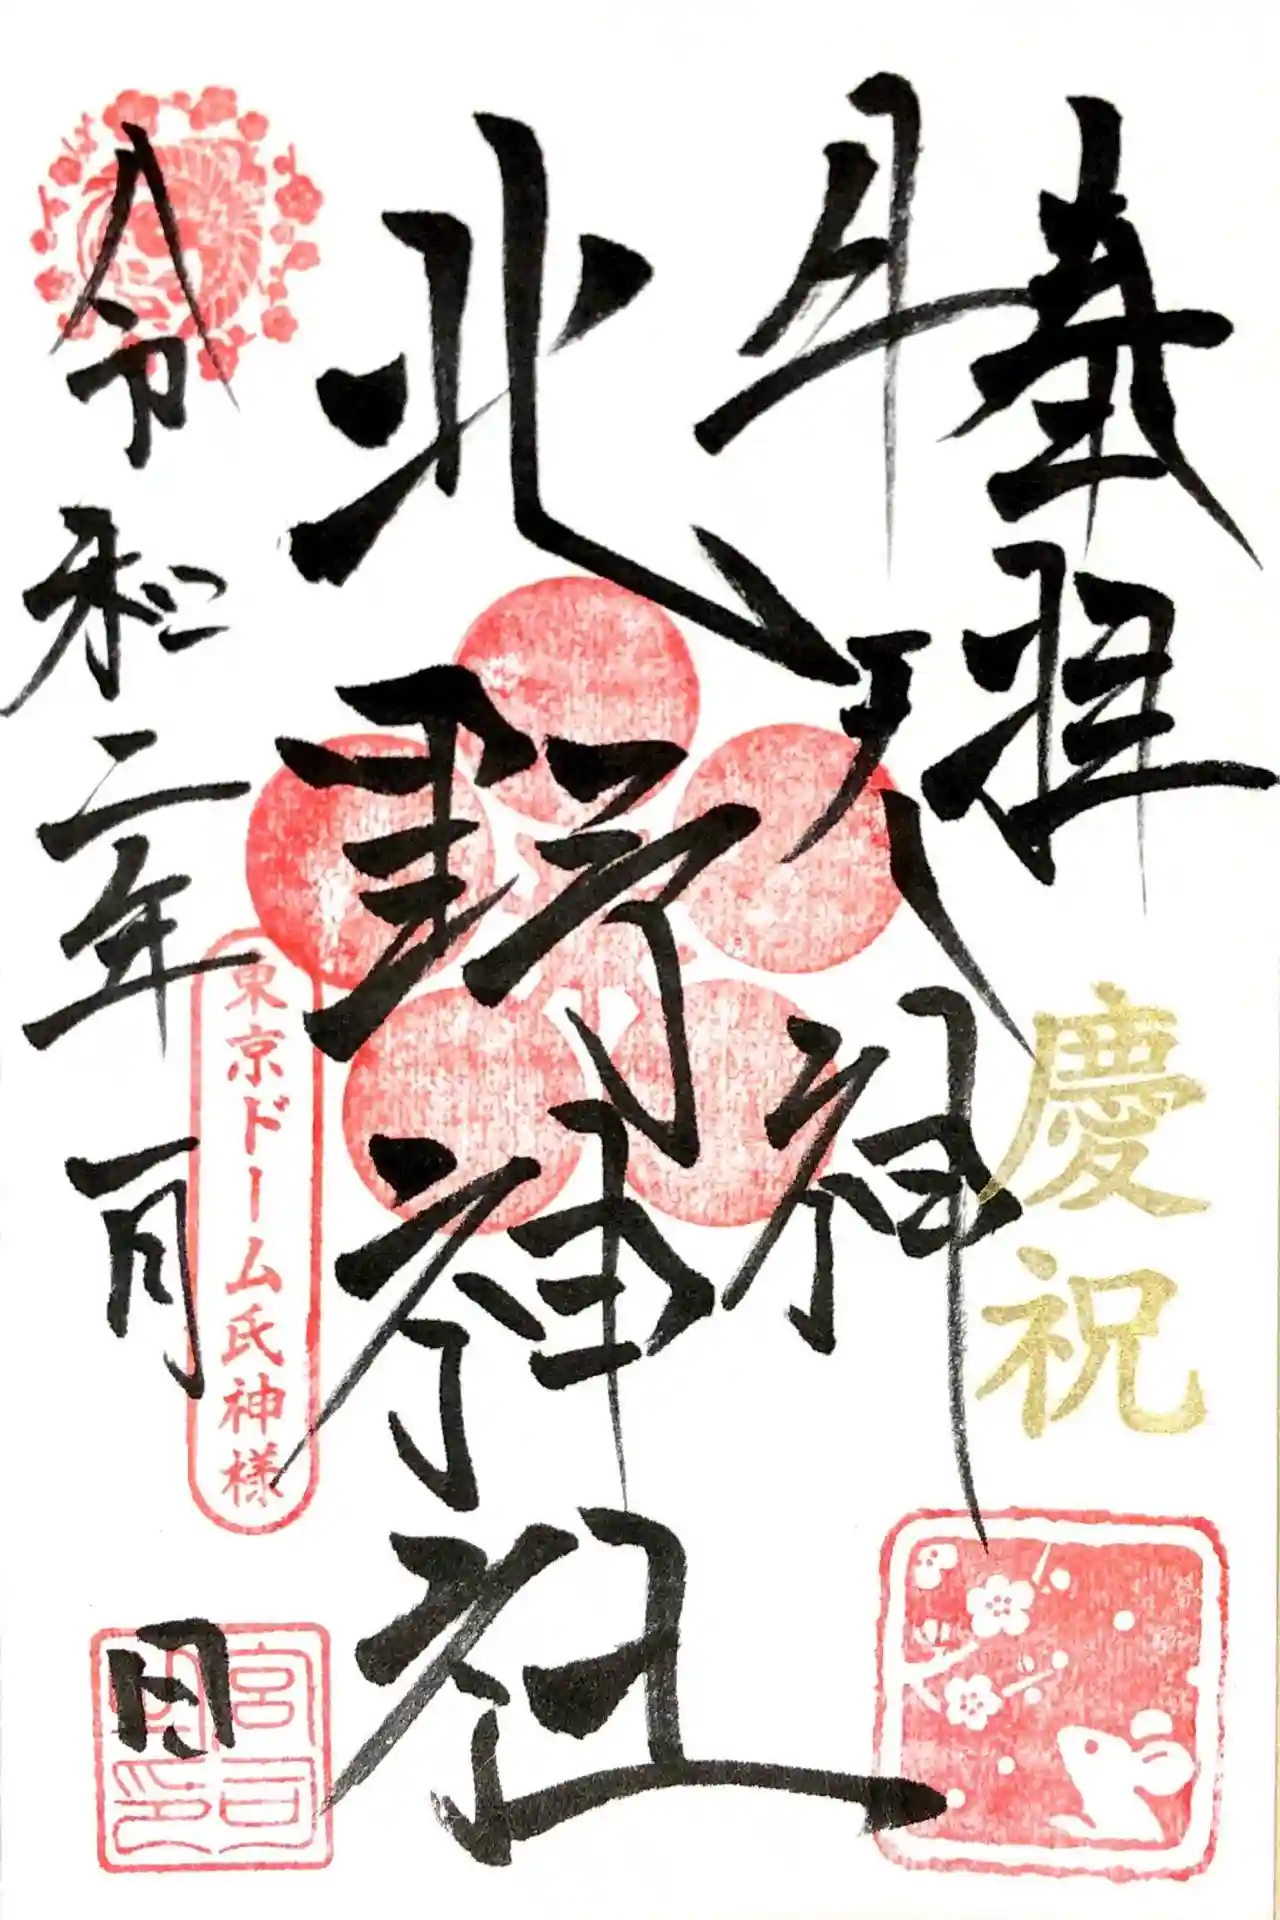 奉拝
慶祝
牛天神
北野神社
令和二年一月
日
東京ドーム氏神様
宮司
之印